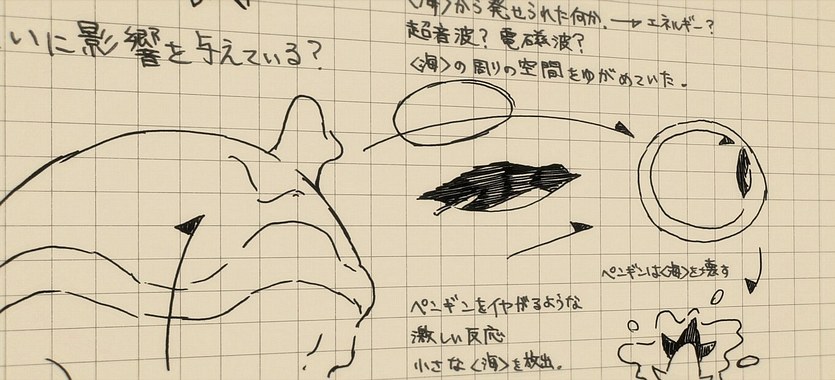 いに影響を与えている?
〈海〉から発せられた何か。→エネルギー?
超音波? 電磁波?
〈海〉の周りの空間をゆがめていた。
ペンギンは〈海〉を壊す
ペンギンをイヤがるような
激しい反応
小さな〈海〉を放出。